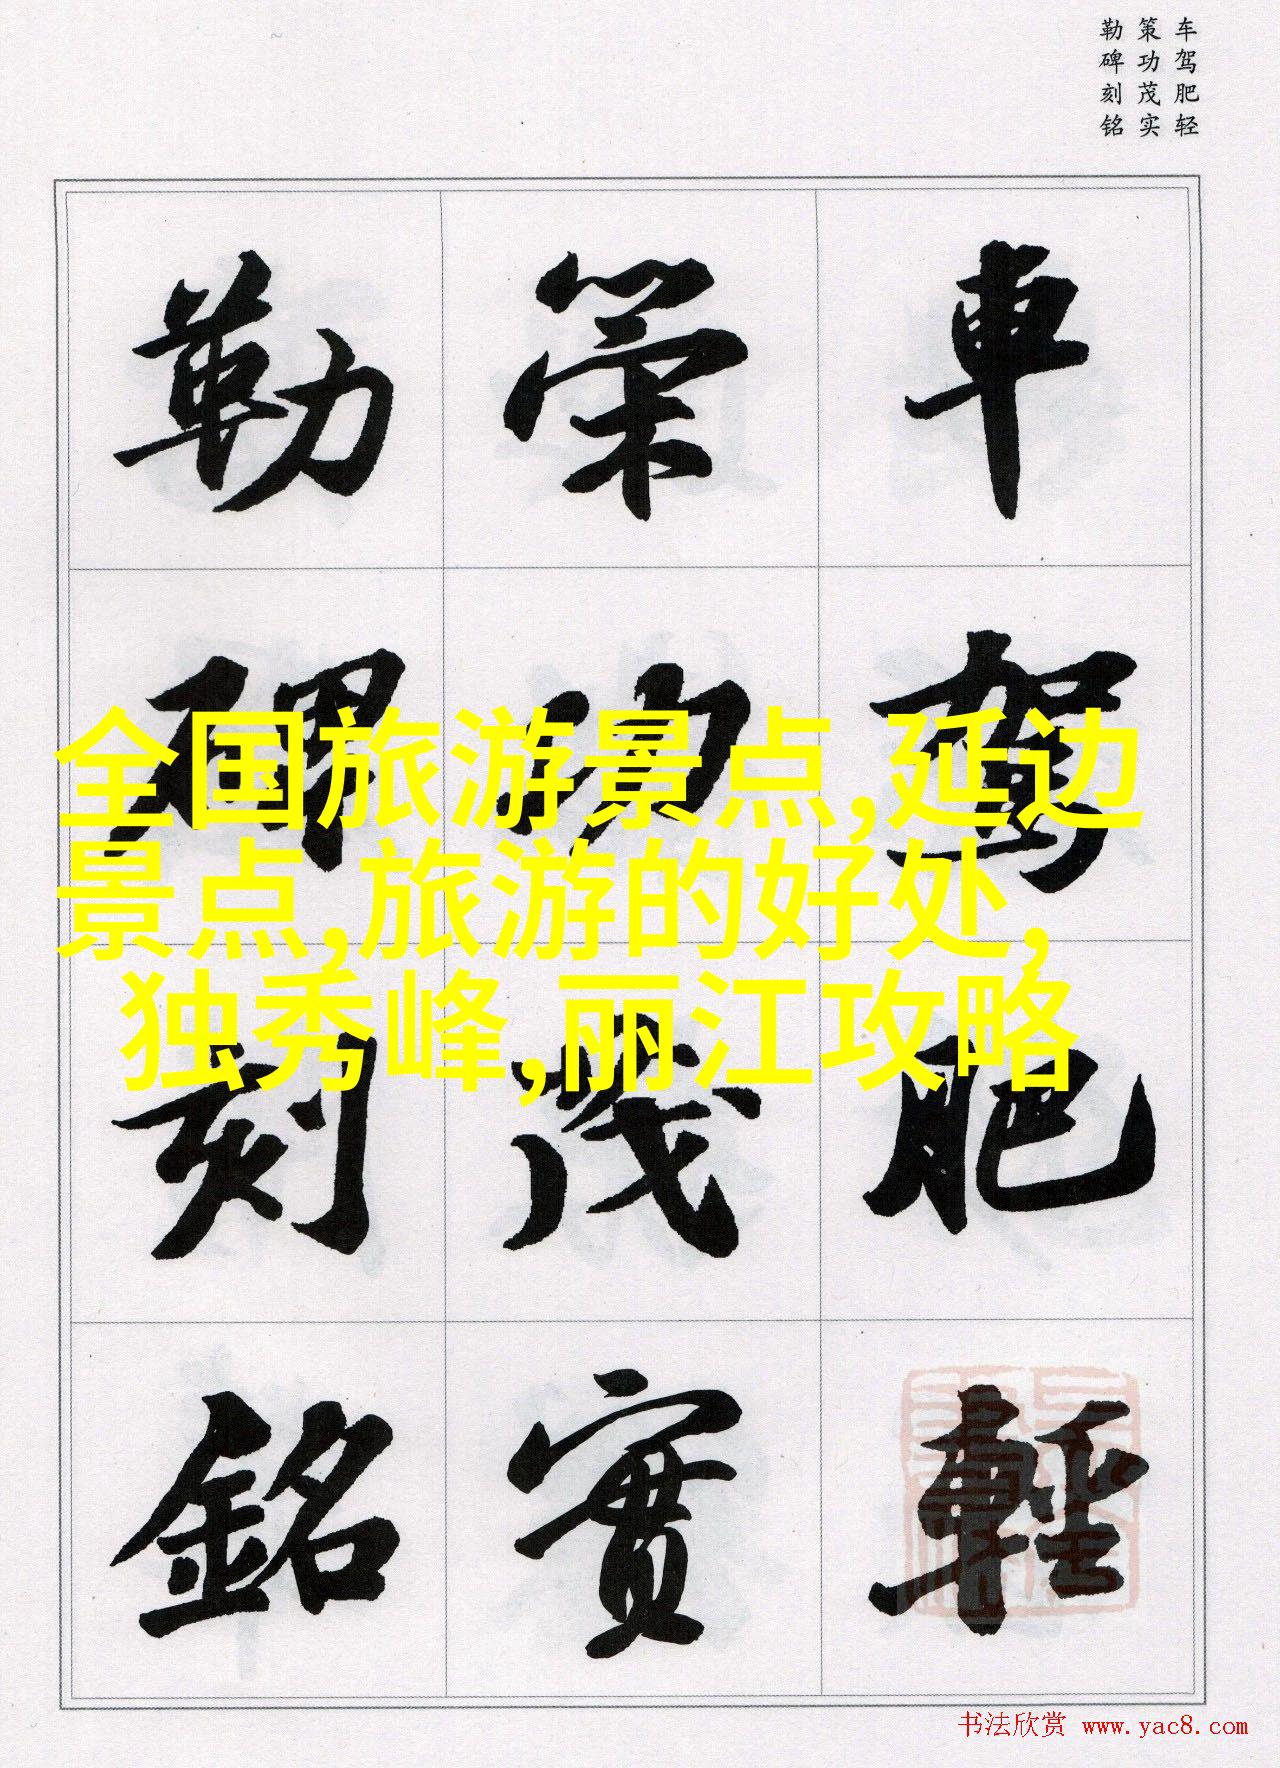 车驾肥轻
策功茂实
勒碑刻铭
車駕肥輕
策功茂實
勒碑刻銘
全国旅游景点,延边
景点,旅游的好处,
独秀峰,丽江攻略
书法欣赏 www.yac8.com